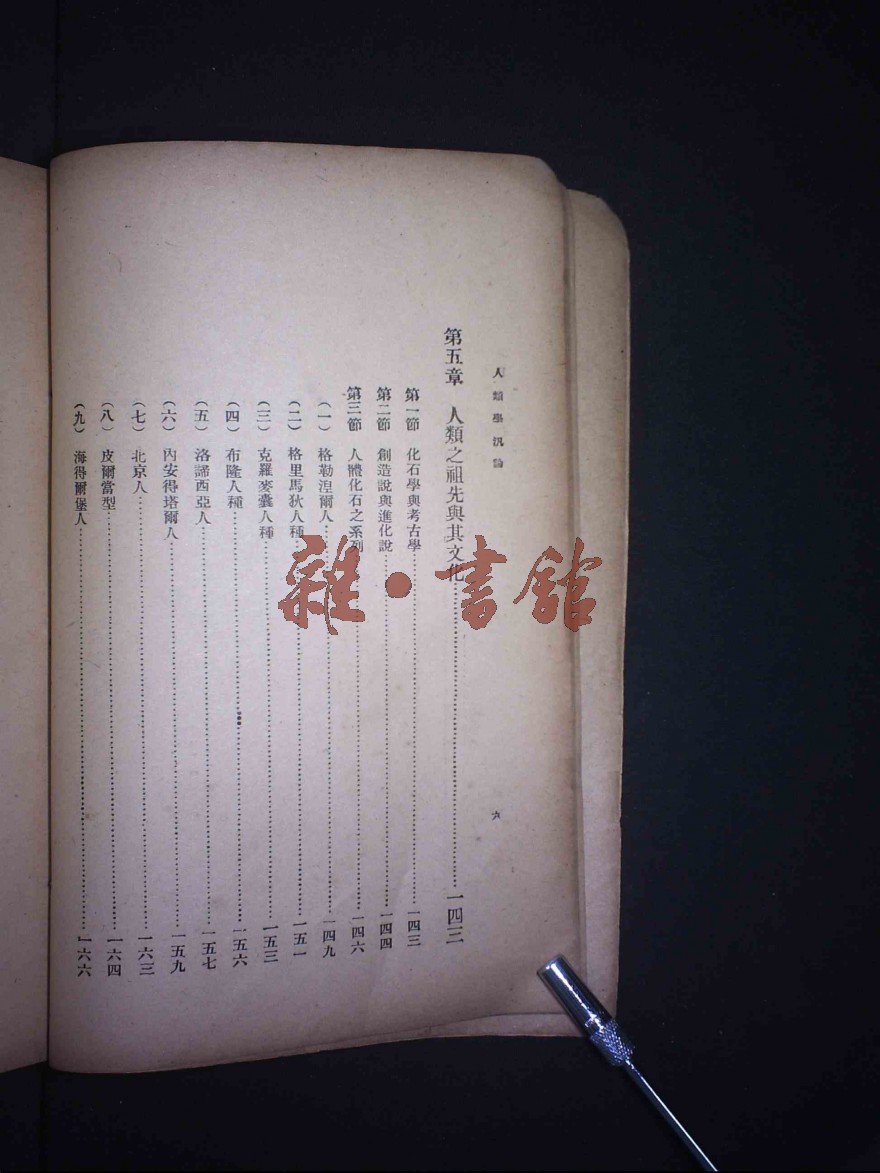 人類學汎論
六
第五章 人類之祖先與其文化……一四三
第一節 化石學與考古學……一四三
第二節 創造說與進化說……一四四
第三節 人體化石之系列……一四六
（一）格勒湼爾人……一四九
（二）格里馬狄人種……一五一
（三）克羅麥囊人種……一五三
（四）布隆人種……一五六
（五）洛諦西亞人……一五七
（六）內安得塔爾人……一五九
（七）北京人……一六三
（八）皮爾當型……一六四
（九）海得爾堡人……一六六
雜·書館